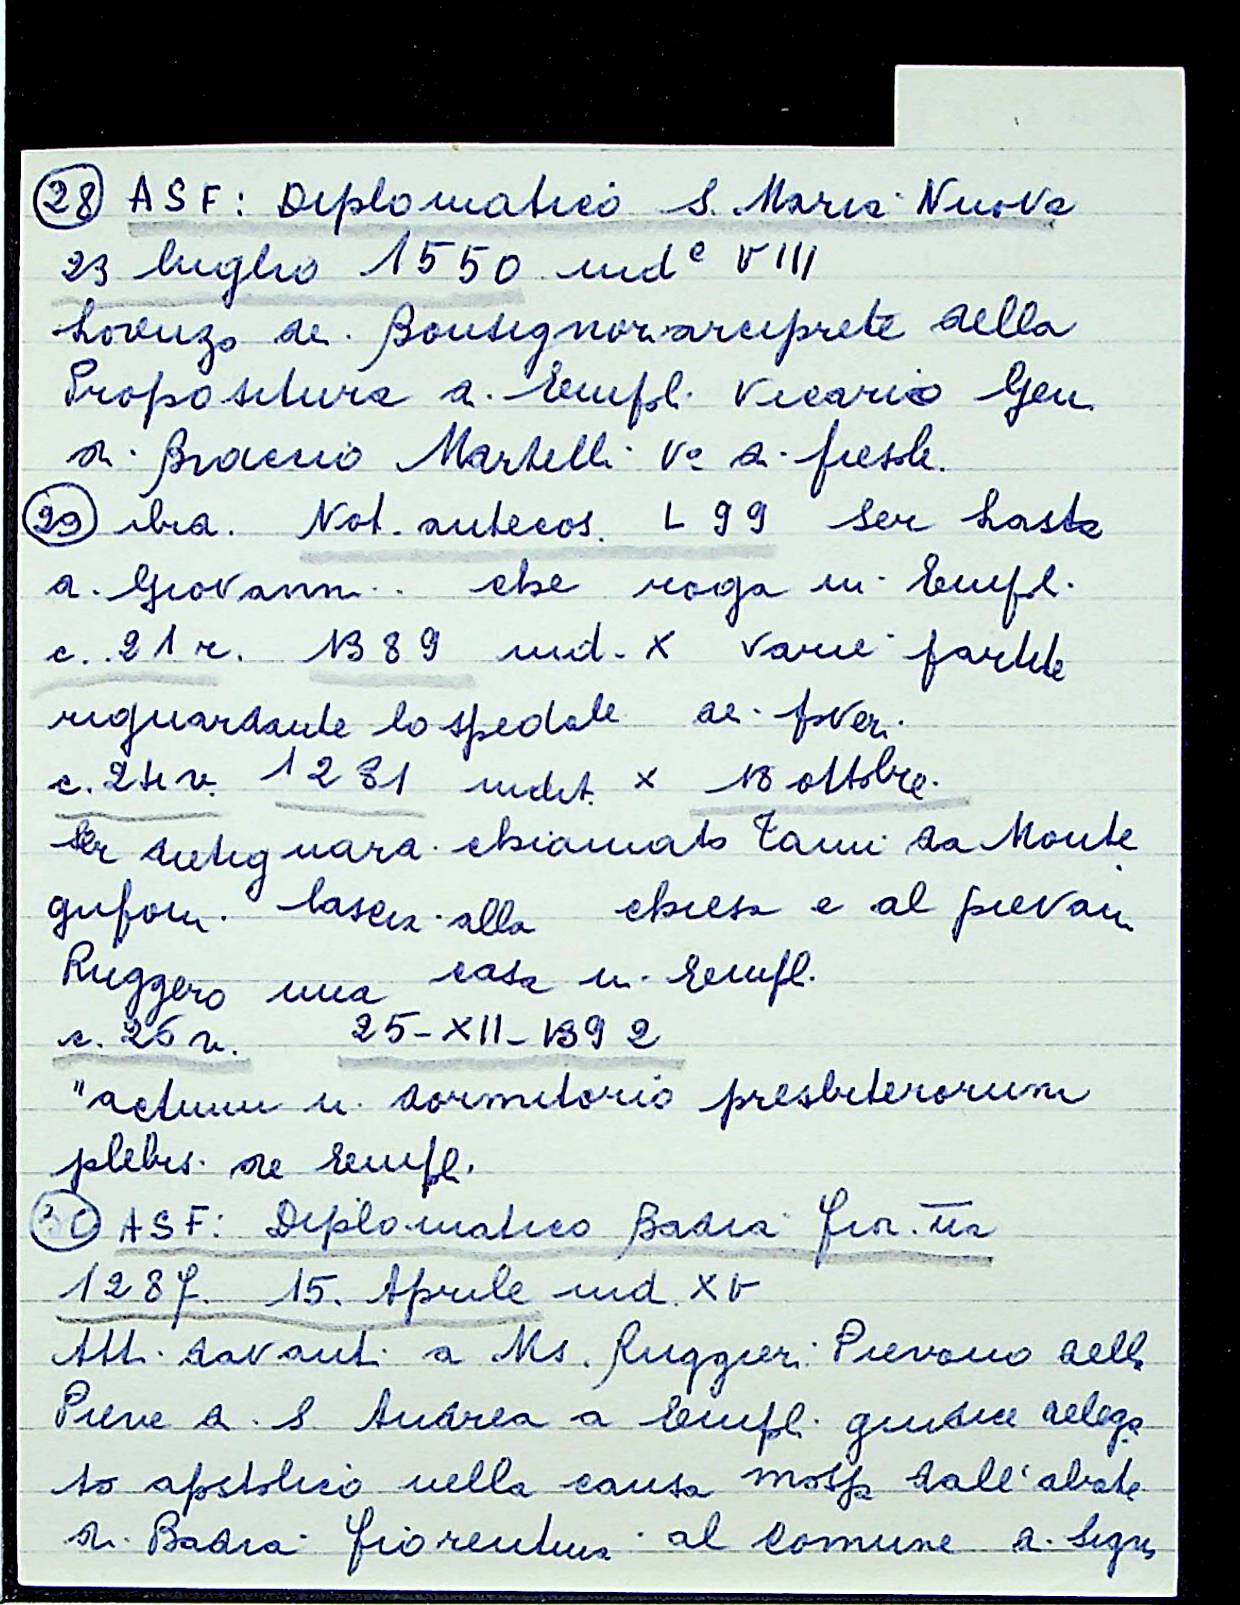 28 ASF: Diplomatico S. Maria Nuova
23 luglio 1550 inde VIII
Lorenzo di Bonsignori arciprete della
Propositura di Empoli Vicario Gen
di Braccio Martelli Vo di fiesole.
29 ibid. Not. antecos. L 99 Ser Lasta
di Giovanni.. che roga in Empoli.
c. 21 r. 1389 ind. X varie partite
riguardante lo spedale dei poveri.
c. 24 v. 1281 indit. X 18 ottobre.
Ser chiamato Tani da Monte
gufoni lascia alla chiesa e al pievan
Ruggero una casa in Empoli.
c. 26 v. 25-XII-1392
"actum in dormitorio presbiterorum
plebis de Empoli.
30 ASF: Diplomatico Badia fior.na
1287. 15. Aprile ind. XV
Atti davanti a Ms. Ruggieri Pievano della
Pieve di S. Andrea a Empoli giudice delega
to apostolico nella causa mossa dall'abate
di Badia fiorentina al comune di Signa